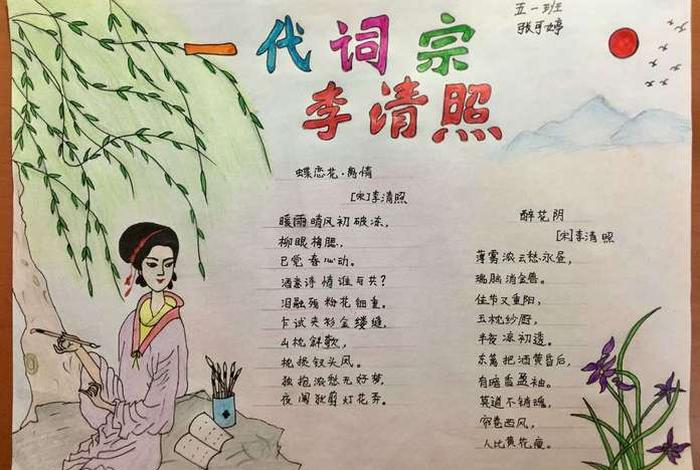 五一班
张可婷
一代词宗
李清照
蝶恋花·离情
[宋]李清照
暖雨晴风初破冻，
柳眼梅腮，
已觉春心动。
酒意诗情谁与共？
泪融残粉花钿重。
乍试夹衫金缕缝，
山枕斜欹，
枕损钗头凤。
独抱浓愁无好梦，
夜阑犹剪灯花弄。
醉花阴
[宋]李清照
薄雾浓云愁永昼，
瑞脑消金兽。
佳节又重阳，
玉枕纱厨，
半夜凉初透。
东篱把酒黄昏后，
有暗香盈袖。
莫道不销魂，
帘卷西风，
人比黄花瘦。